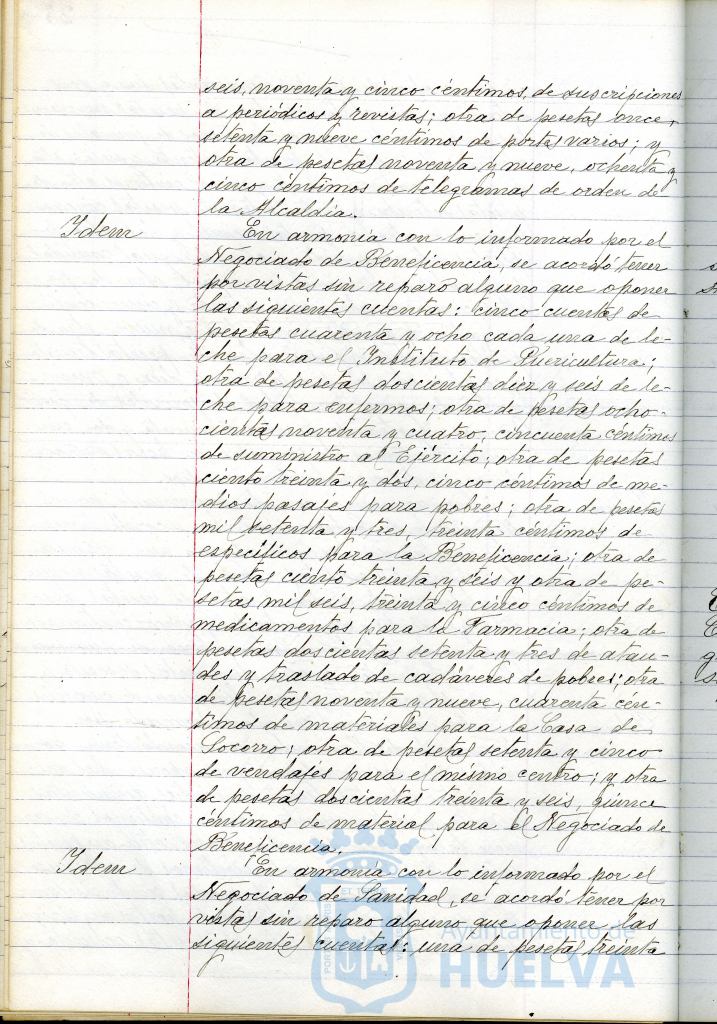 seis, noventa y cinco céntimos, de suscripciones
a periódicos y revistas; otra de pesetas once,
setenta y nueve céntimos de portes varios; y
otra de pesetas noventa y nueve, ochenta y
cinco céntimos de telegramas de orden de
la Alcaldia.
Idem
En armonía con lo informado por el
Negociado de Beneficencia, se acordó tener
por vistas sin reparo alguno que oponer
las siguientes cuentas: cinco cuentas de
pesetas cuarenta y ocho cada una de le-
che para el Instituto de Puericultura;
otra de pesetas doscientas diez y seis de le-
che para enfermos; otra de pesetas ocho-
cientas noventa y cuatro, cincuenta céntimos
de suministro al Ejército; otra de pesetas
ciento treinta y dos, cinco céntimos de me-
dios pasajes para pobres; otra de pesetas
mil setenta y tres, treinta céntimos de
específicos para la Beneficencia; otra de
pesetas ciento treinta y seis y otra de pe-
setas mil seis, treinta y cinco céntimos de
medicamentos para la Farmacia; otra de
pesetas doscientas setenta y tres de ataú-
des y traslado de cadáveres de pobres; otra
de pesetas noventa y nueve, cuarenta cén-
timos de materiales para la Casa de
Socorro; otra de pesetas setenta y cinco
de vendajes para el mismo centro; y otra
de pesetas doscientas treinta y seis, quince
céntimos de material para el Negociado de
Beneficencia.
Idem
En armonía con lo informado por el
Negociado de Sanidad, se acordó tener por
vistas sin reparo alguno que oponer, las
siguientes cuentas: una de pesetas treinta
Ayuntamiento de
HUELVA